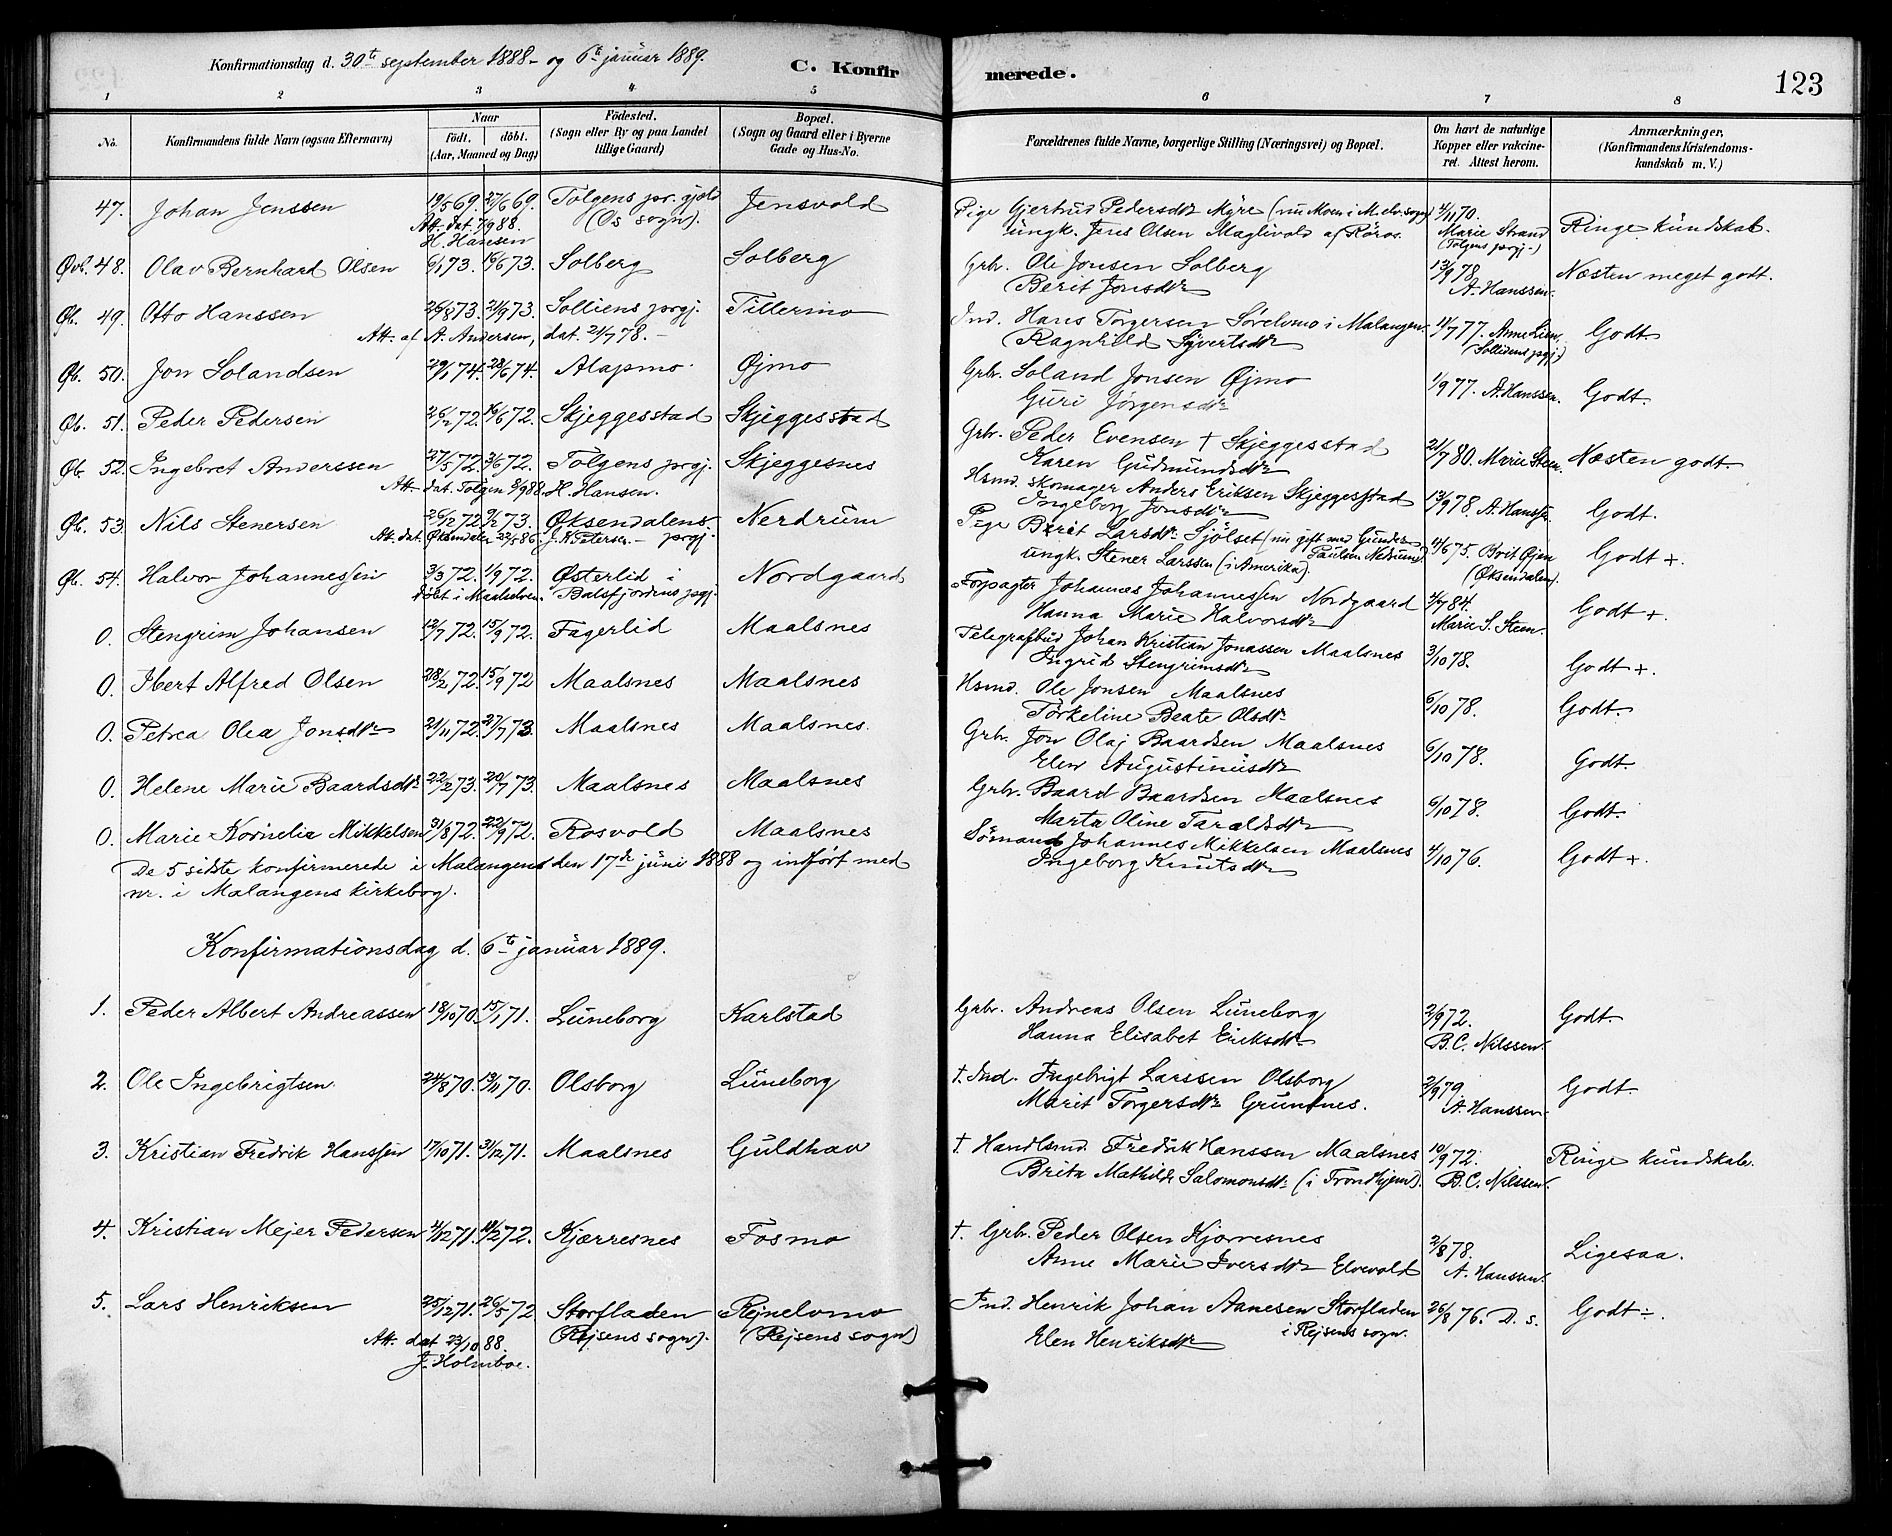 Konfirmationsdag d. 30te september 1888 - og 6te januar 1889. C. Konfir
merede. 123
1 2 3 4 5
6 7 8
No. Konfirmandens fulde Navn (ogsaa Efternavn) Naar födt. döbt. (Aar, Maaned og Dag) Födested. (Sogn eller By og paa Landet tillige Gaard) Bopæl. (Sogn og Gaard eller i Byerne Gade og Hus-No.
Forældrenes fulde Navne, borgerlige Stilling (Næringsvei) og Bopæl. Om havt de naturlige Kopper eller vakcineret. Attest herom. Anmærkninger, (Konfirmandens Kristendomskundskab m. V.)
47. Johan Jenssen 19/5 69. 27/6 69. Tolgens pr.gjeld Jensvold
Att. dat. 7/9 88. (Os sogn).
H. Hansen
Pige Gjertrud Pedersdtr Myre (nu Moen i M.elv. sogn) 4/11 70.
ungk. Jens Olsen Maglivold af Röros. Marie Strand Ringe kundskab.
(Tolgens prgj.)
Øvb. 48. Olav Bernhard Olsen 6/1 73. 15/6 73. Solberg Solberg
Grbr. Ole Jonsen Solberg 13/9 78. Næsten meget godt.
Berit Jonsdtr A. Hanssen.
Øb. 49. Otto Hanssen 26/8 73. 21/9 73. Solliens prgj. Tillermo
Att. af A. Andersen, dat. 21/7 78. -
Ind. Hans Torgersen Sørelvmo i Malangen 11/7 77. Anne Lien, Godt.
Ragnhild Syvertsdtr (Sollidens prgj.)
Øb. 50. Jon Solandsen 29/1 74. 28/6 74. Alapmo Øjmo
Grbr. Soland Jonsen Øjmo 1/9 77. A. Hanssen. Godt.
Guri Jørgensdtr
Øb. 51. Peder Pedersen 26/2 72. 16/6 72. Skjeggesstad Skjeggesstad
Grbr. Peder Evensen + Skjeggesstad 21/7 80. Marie Steen. Næsten godt.
Karen Gudmundsdtr
Øb. 52. Ingebret Anderssen 27/5 72. 3/6 72. Tolgens prgj. Skjeggesnes
Att. dat. Tolgen 8/9 88. H. Hansen.
Hsmd. skomager Anders Eriksen Skjeggesstad 13/9 78. A. Hanssen Godt.
Ingeborg Jonsdtr
Øb. 53. Nils Stenersen 26/12 72. 9/2 73. Øksendalens Nerdrum
Att. dat. Øksendalen 22/5 86. J. N. Petersen - prgj.
Pige Berit Larsdtr Sjölset (nu gift med Gunder 11/6 75. Brit Øjen Godt +
ungk. Stener Larssen (i Amerika). Paulsen Nedrum). (Øksendalen).
Øb. 54. Halvor Johannessen 3/3 72. 1/9 72. Østerlid i Nordgaard
döbt i Maalselven. Balsfjordens prgj.
Forpagter Johannes Johannessen Nordgaard 4/7 84. Godt +.
Hanna Marie Halvorsdtr Marie S. Steen.
0. Stengrim Johansen 12/7 72. 15/9 72. Fagerlid Maalsnes
Telegrafbud Johan Kristian Jonassen Maalsnes 3/10 78. Godt +.
Ingrid Stengrimsdtr
0. Ibert Alfred Olsen 28/2 72. 15/9 72 Maalsnes Maalsnes
Hsmd. Ole Jonsen Maalsnes 6/10 78. Godt.
Torkeline Beate Olsdtr
0. Petrea Olea Jonsdtr 21/11 72. 27/7 73. Maalsnes Maalsnes.
Grbr. Jon Olaj Baardsen Maalsnes 6/10 78. Godt.
Elen Augustinusdtr
0. Helene Marie Baardsdtr 22/2 73. 20/7 73. Maalsnes Maalsnes
Grbr. Baard Baardsen Maalsnes 6/10 78. Godt.
Marta Oline Taraldsdtr
0. Marie Kornelia Mikkelsen 31/8 72. 22/9 72. Rosvold Maalsnes
Sömand Johannes Mikkelsen Maalsnes 4/10 76. Godt +.
Ingeborg Knutsdtr
De 5 sidste konfirmerede i Malangens den 17de juni 1888 og indført med
nr. i Malangens kirkebog.
Konfirmationsdag d. 6te januar 1889.
1. Peder Albert Andreassen 18/10 70. 15/1 71. Luneborg Karlstad
Grbr. Andreas Olsen Luneborg 2/9 72. Godt.
Hanna Elisabet Eriksdtr B.C. Nilssen.
2. Ole Ingebrigtsen 24/8 70. 13/11 70. Olsborg Luneborg
+. Ind. Ingebrigt Larssen Olsborg 2/9 79. Godt.
Marit Torgersdtr Grundnes. A. Hanssen.
3. Kristian Fredrik Hanssen 17/10 71. 31/12 71. Maalsnes Guldhav
+ Handlsmd. Fredrik Hanssen Maalsnes 10/9 72. Ringe kundskab.
Brita Mathilde Salomonsdtr (i Trondhjem). B.C. Nilssen.
4. Kristian Mejer Pedersen 4/12 71. 11/2 72. Kjærresnes Fosmo
+. Grbr. Peder Olsen Kjærresnes 2/8 78. Ligesaa.
Anne Marie Iversdtr Elvevold A. Hanssen.
5. Lars Henriksen 25/12 71. 26/5 72 Storfladen Rejnelvmo
(Rejsens sogn). (Rejsens sogn)
Att. dat 23/10 88.
J. Holmboe.
Ind. Henrik Johan Aanesen Storfladen 26/8 76. D. s. Godt ÷.
Elen Henriksdtr i Rejsens sogn.